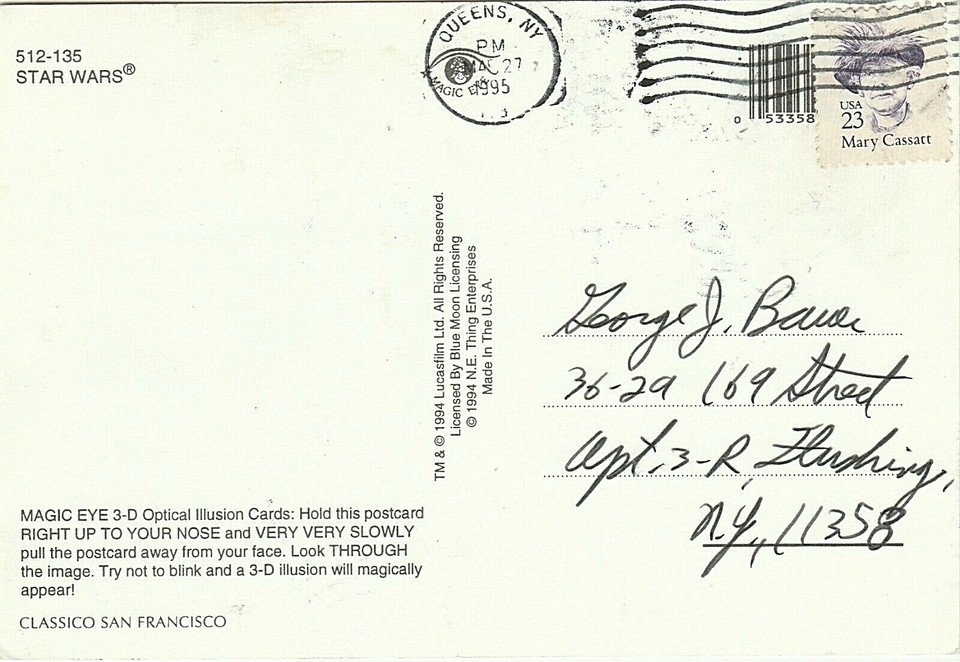 512-135
STAR WARS®
QUEENS, NY
PM
27
1995
MAGIC EYE
0 53358
USA
23
Mary Cassatt
TM & © 1994 Lucasfilm Ltd. All Rights Reserved.
Licensed By Blue Moon Licensing
© 1994 N.E. Thing Enterprises
Made In The U.S.A.
George J. Bauer
36-29 169 Street
Apt. 3-R, Flushing,
N.Y., 11358
MAGIC EYE 3-D Optical Illusion Cards: Hold this postcard
RIGHT UP TO YOUR NOSE and VERY VERY SLOWLY
pull the postcard away from your face. Look THROUGH
the image. Try not to blink and a 3-D illusion will magically
appear!
CLASSICO SAN FRANCISCO